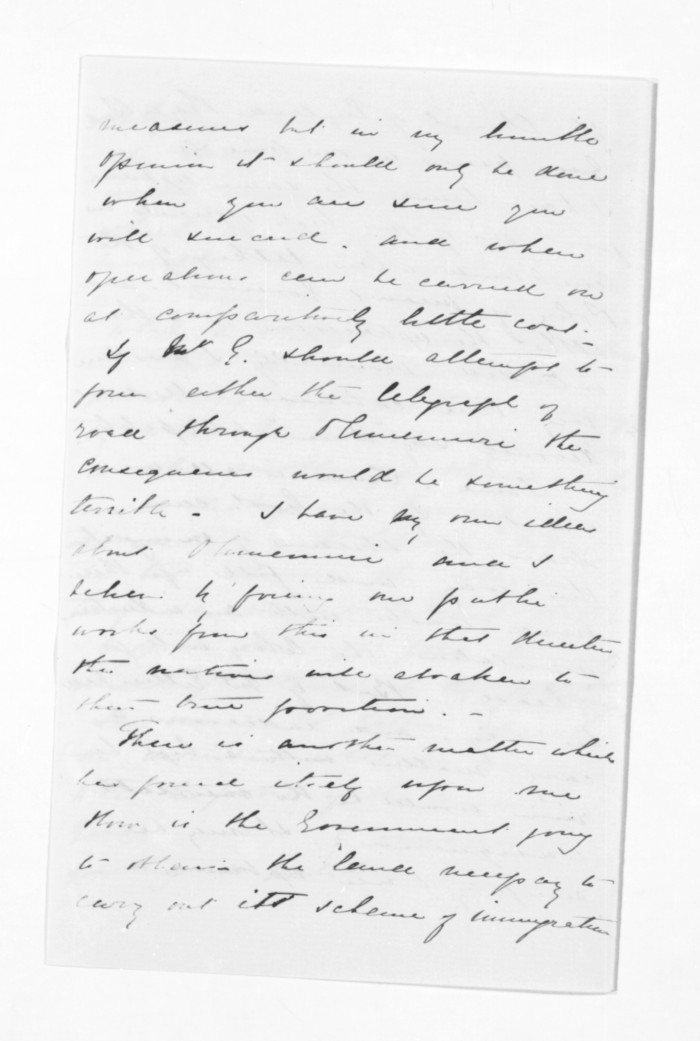 measures but in my humble
opinion it should only be done
when you are sure you
will succeed. and when
operations can be carried on
at comparitively little cost -
If Mr G. should attempt to
force either the telegraph or
road through Ohinemuri the
consequences would be something
terrible - I have my own ideas
about Ohinemuri and I
believe by forcing our public
works from this in that direction
the natives will awaken to
their true position. -
There is another matter which
has forced itself upon me
How is the Government going
to obtain the land necessary to
carry out its scheme of immigration